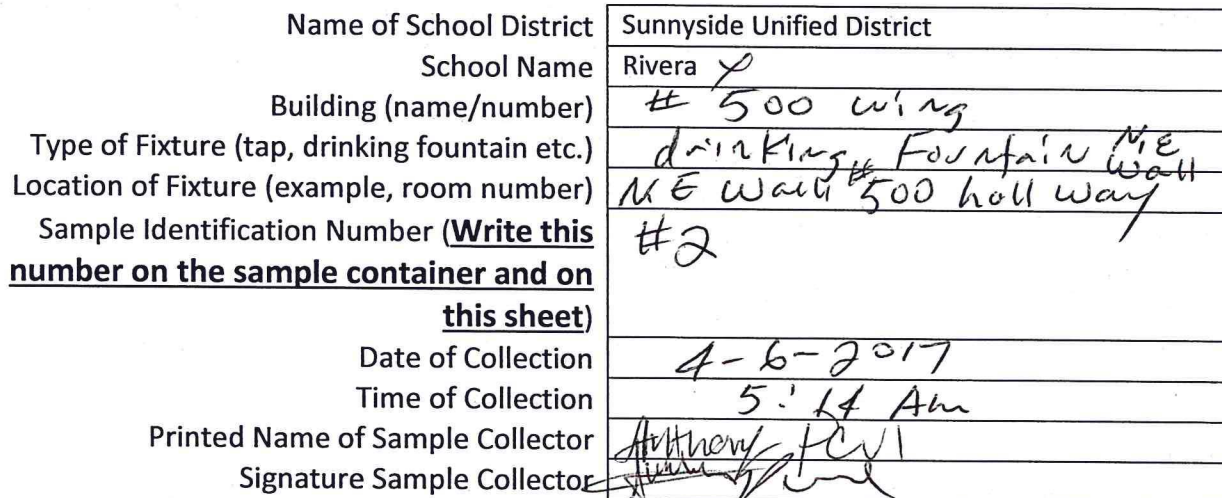 Name of School District Sunnyside Unified District
School Name Rivera
Building (name/number) # 500 wing
Type of Fixture (tap, drinking fountain etc.) drinking Fountain N.E Wall
Location of Fixture (example, room number) N E Wall #500 hall way
Sample Identification Number (Write this #2
number on the sample container and on
this sheet)
Date of Collection 4-6-2017
Time of Collection 5:14 Am
Printed Name of Sample Collector Anthony
Signature Sample Collector